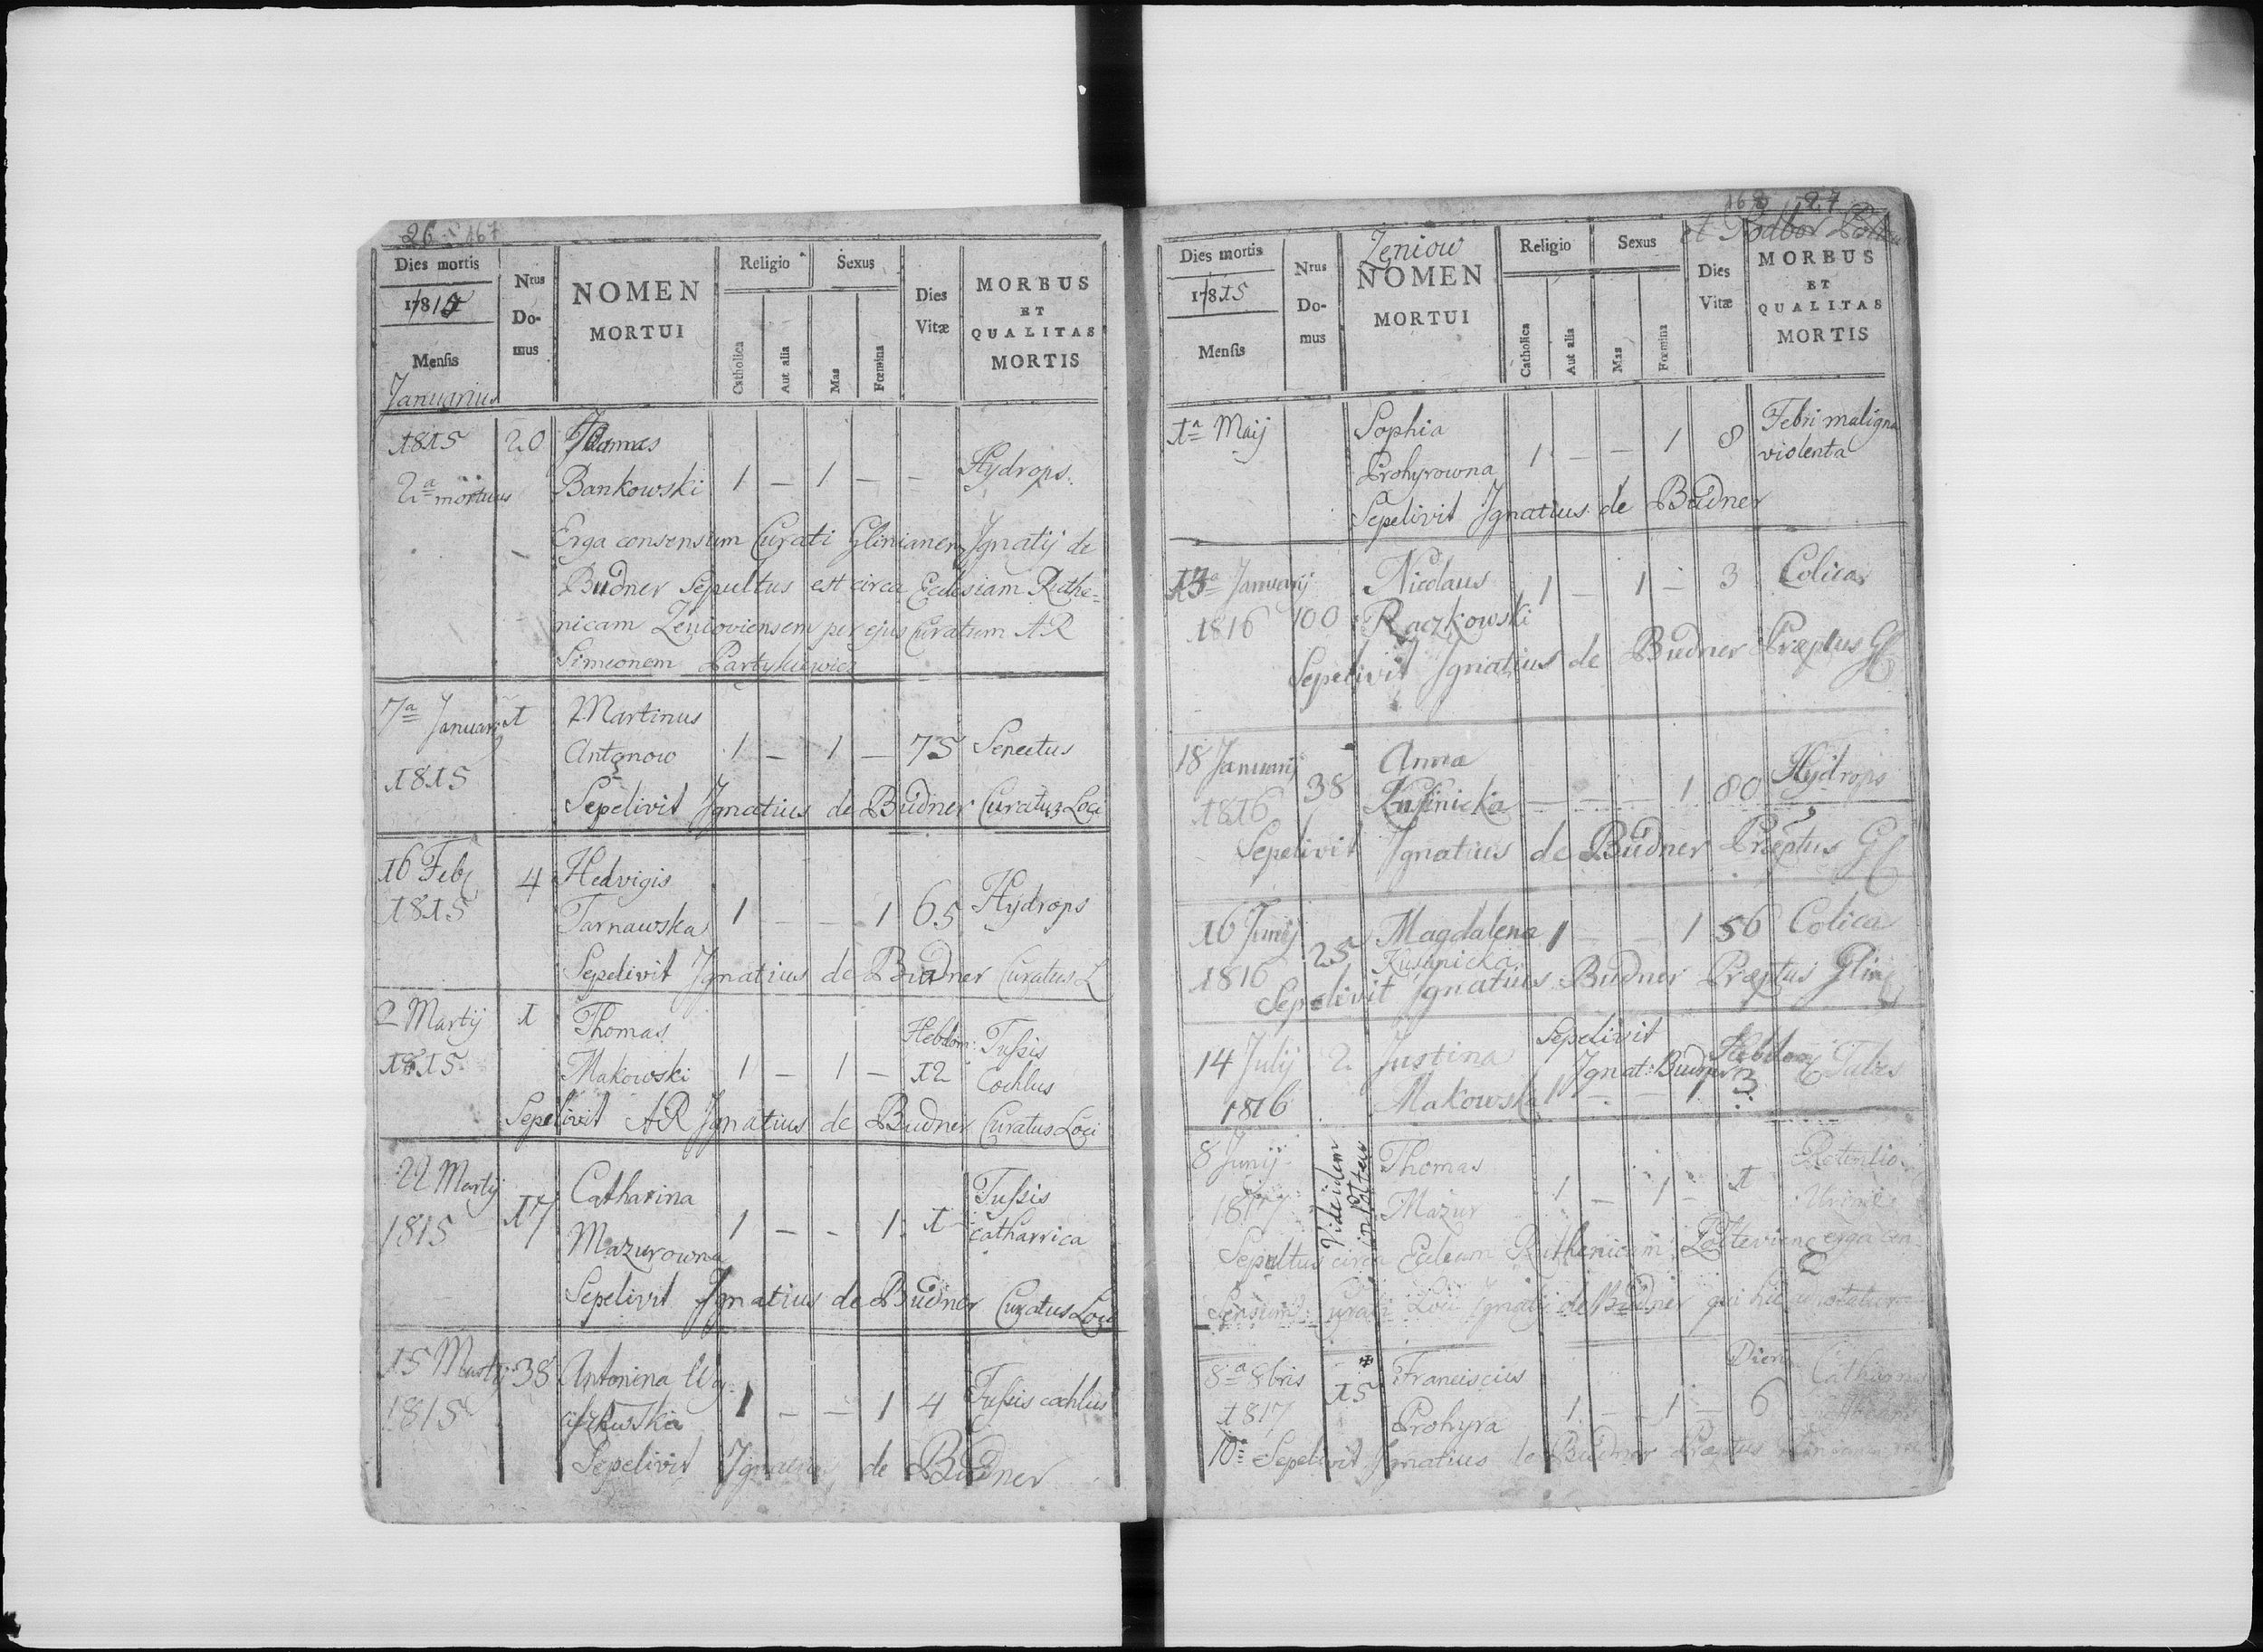 26 167
Dies mortis
Nrus
Do-
mus
NOMEN
MORTUI
Religio
Sexus
Catholica
Aut alia
Mas
Fœmina
Dies
Vitæ
MORBUS
ET
QUALITAS
MORTIS
Mensis
Januarius
1815 20
2a mortuus Bankowski 1 — 1 — — Hydrops.
Erga consensum Curati Glinianen Ignatij de
Budner Sepultus est circa Eclesiam Ruthe=
nicam Zenioviensem per ejus Curatum AR
Simeonem
7a Januarij 1 Martinus
1815 Antonow 1 — 1 — 75 Senectus
Sepelivit Ignatius de Budner Curatus Loci
16 Feb 4 Hedvigis
1815 Tarnawska 1 — — 1 65 Hydrops
Sepelivit Ignatius de Budner Curatus L
2 Martij 1 Thomas Hebdom: Tussis
1815 Makowski 1 — 1 — 12 Cochlus
Sepelivit AR Ignatius de Budner Curatus Loci
22 Martij 17 Catharina Tussis
1815 Mazurowna 1 — — 1 1 catharrica
Sepelivit Ignatius de Budner Curatus Loci
15 Martij 38 Antonina
1815 1 — — 1 4 Tussis cochlus
Sepelivit Ignatius de Budner
27
Zeniow et
Dies mortis
1815
Mensis
Nrus
Do-
mus
NOMEN
MORTUI
Religio
Sexus
Catholica
Aut alia
Mas
Fœmina
Dies
Vitæ
MORBUS
ET
QUALITAS
MORTIS
1a Maij Sophia Febri maligna
Prohyrowna 1 — — 1 8 violenta
Sepelivit Ignatius de Budner
13a Januarij Nicolaus 1 — 1 — 3 Colica
1816 100 Raczkowski
Sepelivit Ignatius de Budner Præptus Gl
18 Januarij 38 Anna
1816 — — — 1 80 Hydrops
Sepelivit Ignatius de Budner Præptus Gl
16 Junij 25 Magdalena 1 — — 1 56 Colica
1816 Kusznicka
Sepelivit Ignatius Budner Præptus Glin
14 Julij 2 Justina Sepelivit Hebdom
1816 Makowska 1 Ignat: Budner — — 1 3
8 Junij Vide idem Thomas Retentio
1817 in Mazur 1 — 1 — 1
Sepultus circa Ecleam Ruthenicam erga con-
sensum Curati Loci Ignatij de Budner qui hic
8a 8bris 15 Franciscus Dierum
1817 Prohyra 1 — 1 — 6
10a Sepelivit Ignatius de Budner Præptus